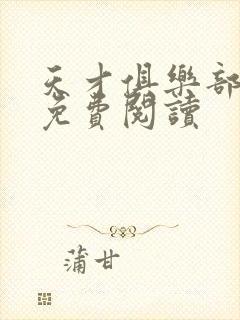 天才俱樂部
免費閱讀
蒲甘